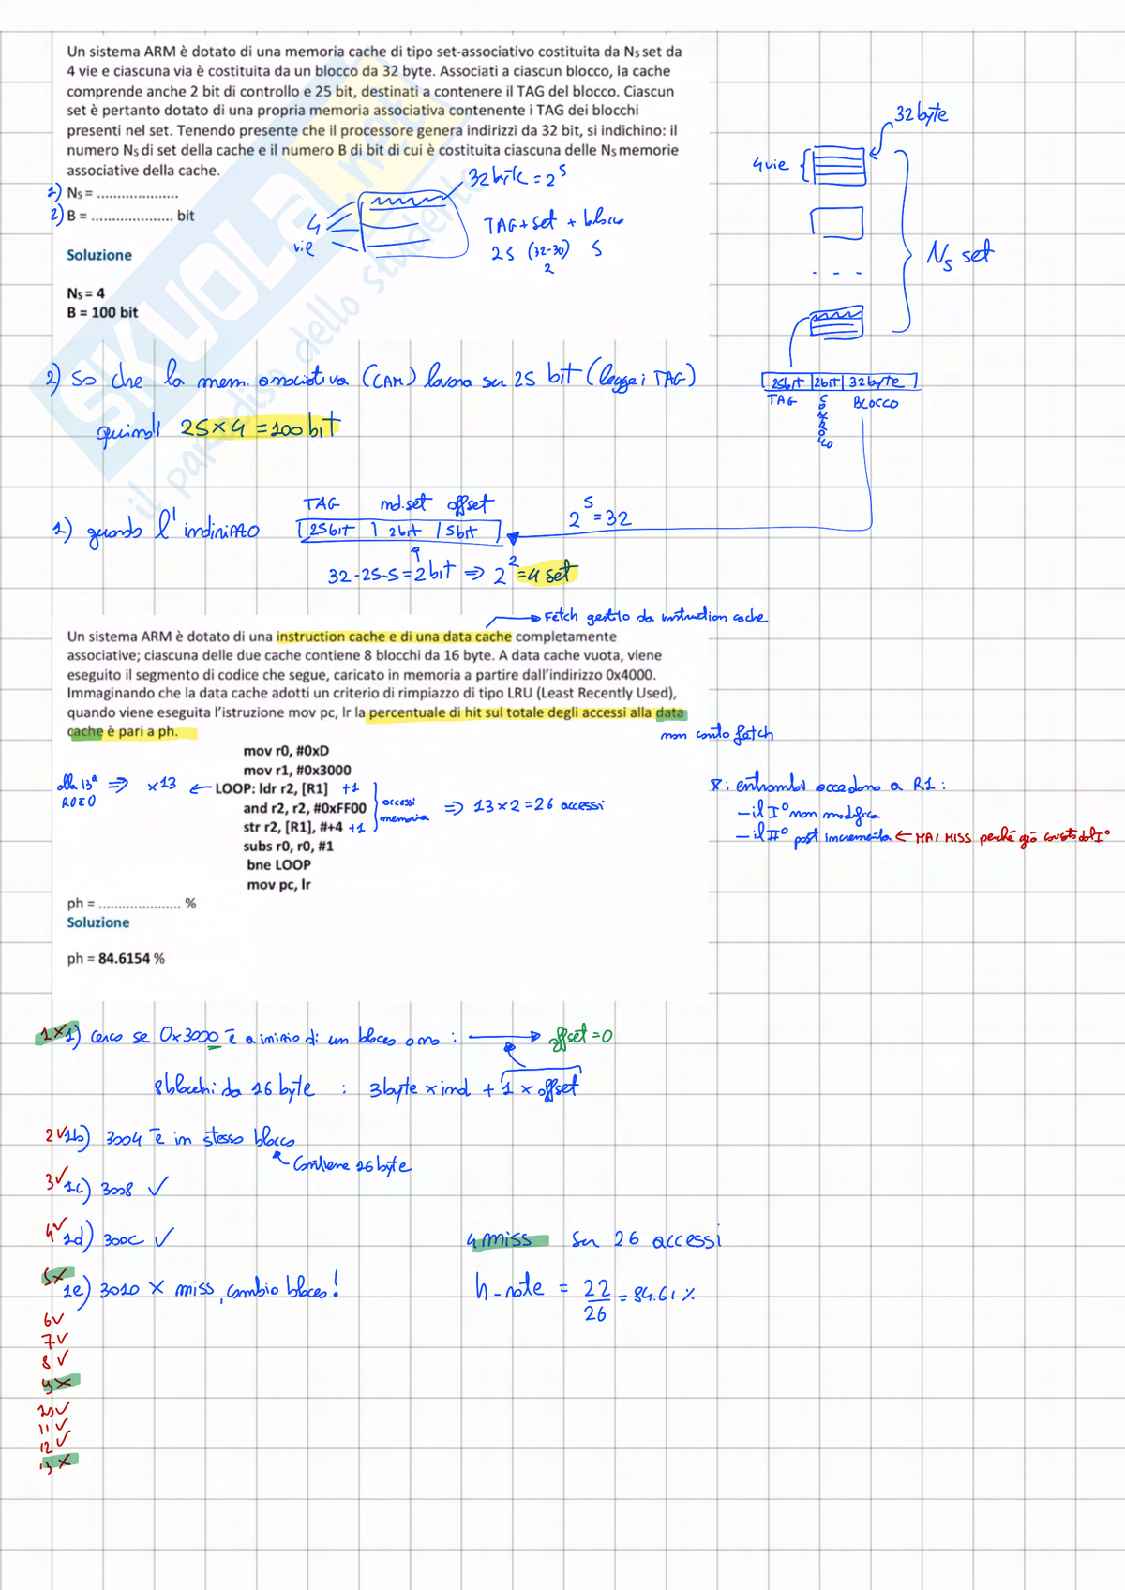 Un sistema ARM è dotato di una memoria cache di tipo set-associativo costituita da Ns set da
4 vie e ciascuna via è costituita da un blocco da 32 byte. Associati a ciascun blocco, la cache
comprende anche 2 bit di controllo e 25 bit, destinati a contenere il TAG del blocco. Ciascun
set è pertanto dotato di una propria memoria associativa contenente i TAG dei blocchi
presenti nel set. Tenendo presente che il processore genera indirizzi da 32 bit, si indichino: il
numero Ns di set della cache e il numero B di bit di cui è costituita ciascuna delle Ns memorie
associative della cache.
1) Ns = ....................
2) B = .................... bit
32 byte = 2^5
4 vie
TAG + set + blocco
25 (32-30) 5
2
32 byte
4 vie
Ns set
Soluzione
Ns = 4
B = 100 bit
25bit | 2bit | 32byte
TAG CONTROLLO BLOCCO
2) so che la mem. associativa (CAM) lavora su 25 bit (legge i TAG)
quindi 25 × 4 = 100 bit
TAG ind.set offset
1) guardo l'indirizzo | 25bit | 2bit | 5bit | 2^5 = 32
32-25-5 = 2 bit ⇒ 2^2 = 4 set
Fetch gestito da instruction cache
Un sistema ARM è dotato di una instruction cache e di una data cache completamente
associative; ciascuna delle due cache contiene 8 blocchi da 16 byte. A data cache vuota, viene
eseguito il segmento di codice che segue, caricato in memoria a partire dall'indirizzo 0x4000.
Immaginando che la data cache adotti un criterio di rimpiazzo di tipo LRU (Least Recently Used),
quando viene eseguita l'istruzione mov pc, lr la percentuale di hit sul totale degli accessi alla data
cache è pari a ph.
non conto fetch
mov r0, #0xD
mov r1, #0x3000
alla 13ª R0=0 ⇒ ×13 ← LOOP: ldr r2, [R1] +1
and r2, r2, #0xFF00
str r2, [R1], #+4 +1
accessi memoria ⇒ 13 × 2 = 26 accessi
subs r0, r0, #1
bne LOOP
mov pc, lr
entrambi accedono a R1:
- il I° non modifica
- il II° post incrementa ← MAI MISS perché già caricato dal I°
ph = .................... %
Soluzione
ph = 84.6154 %
1× 1) cerco se 0x3000 è a inizio di un blocco o no : → offset = 0
8 blocchi da 16 byte : 3byte × ind + 1 × offset
2✓ 1b) 3004 è in stesso blocco
Contiene 16 byte
3✓ 1c) 3008 ✓
4✓ 1d) 300C ✓
4 miss su 26 accessi
5× 1e) 3010 × miss, cambio blocco!
h_rate = 22/26 = 84.61 %
6✓
7✓
8✓
9×
10✓
11✓
12✓
13×
SKUOLA.net
il paradiso dello studente